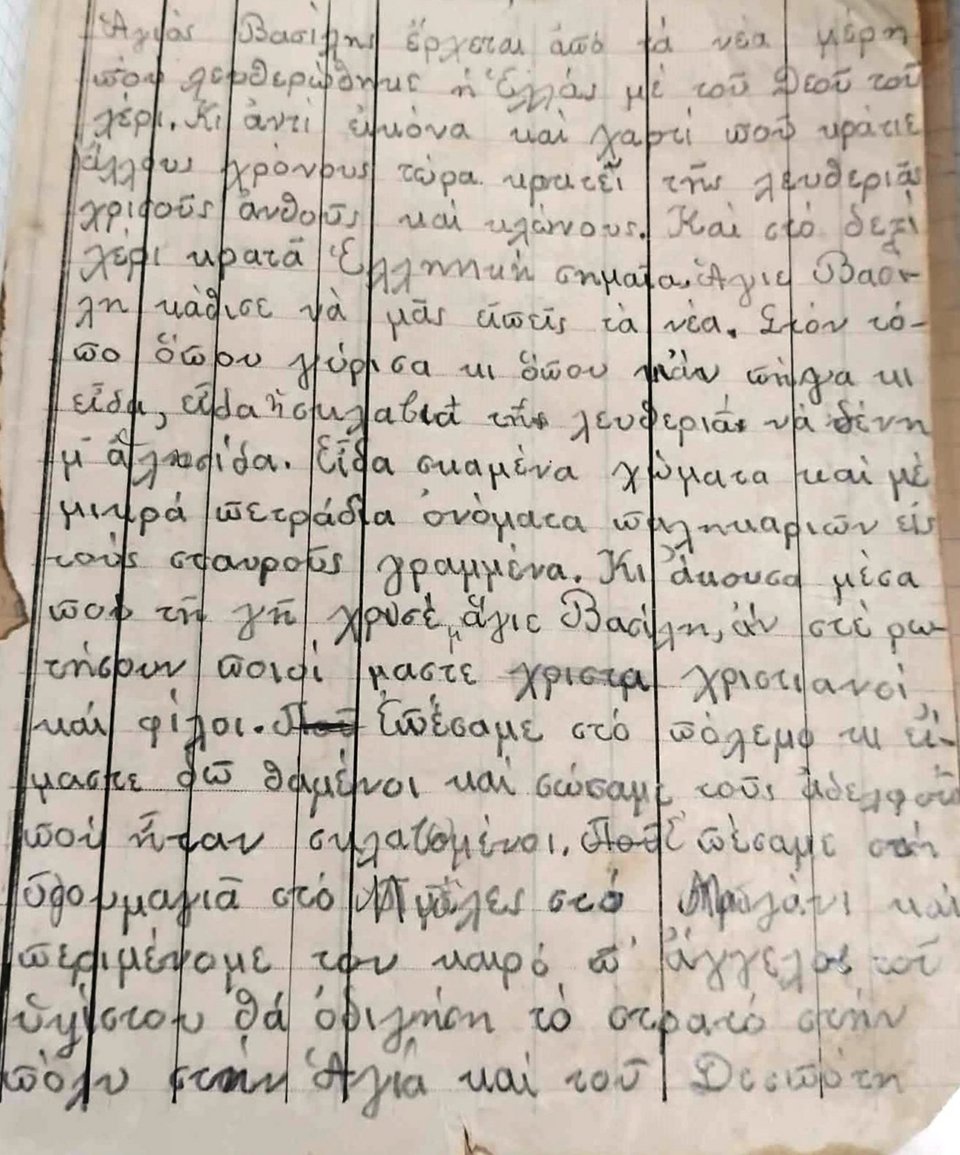 Ἁγιὸς Βασίλης ἔρχεται ἀπὸ τὰ νέα μέρη
πὸυ λευθερώθηκε ἡ Ἑλλάς μὲ τοῦ Θεοῦ τοῦ
χέρι. Κι ἀντὶ εἰκόνα καὶ χαρτί ποῦ κράτιε
ἄλλους χρόνους τώρα κρατεῖ τῆς λευθεριᾶς
χρισοῦς ἀνθοῦς καὶ κλώνους. Καὶ στό δεξὶ
χέρι κρατᾶ Ἑλληνηκή σημαῖα. Ἁγιε Βασι-
λη κάθισε νὰ μᾶς εἰπεῖς τὰ νέα. Στόν τό-
πο ὅπου γύρισα κι ὅπου κἂν πῆγα κι
εἶδα, εἶδα ἡ σκλαβιά τῆς λευθεριᾶς νὰ δένη
μ̓ ἁλησίδα. Εἶδα σκαμένα χώματα καὶ μὲ
μικρά πετράδια ὀνόματα παληκαριῶν εἰς
τοὺς σταυροῦς γραμμένα. Κι ἄκουσα μέσα
ποὺ τῆ γῆ χρυσέ μ ἅγιε Βασίλη, ἀν στὲ ρω-
τήσουν ποιοί μαστε χριστα χριστιανοί
καί φίλοι. Ποῦ Ἐπέσαμε στό πόλεμο κι εἴ-
μαστε δῶ θαμένοι καὶ σώσαμε τοῦς ἀδελφοῦς
ποὺ ἦταν σκλαβομένοι. Ποῦ Ἐπέσαμε στὴ
Ὁθουμαγιᾶ στό Μπέλες στό Μπυζάνι καὶ
περιμένομε τον καιρό π̓ ἄγγελος τοῦ
ὑψίστου θά ὁδιγήση τὸ στρατό στὴν
πόλυ στὴν Ἁγιὰ καὶ τοῦ Δεσπότη